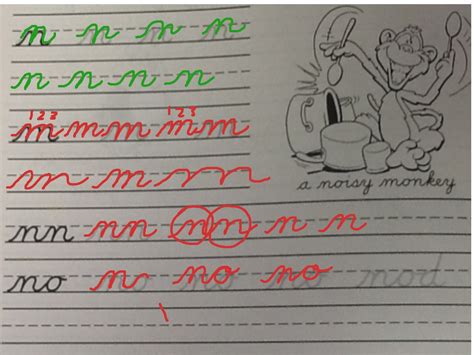 n n n n
n n n n
1 2 3 1 2 3
m m m m m
a noisy monkey
nn nn n n n n
no no no no nod